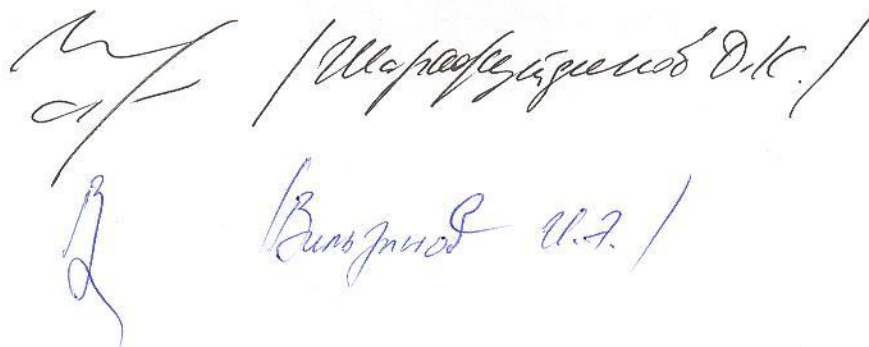 /Шарафутдинов Д.К./
/Вильданов И.Э./